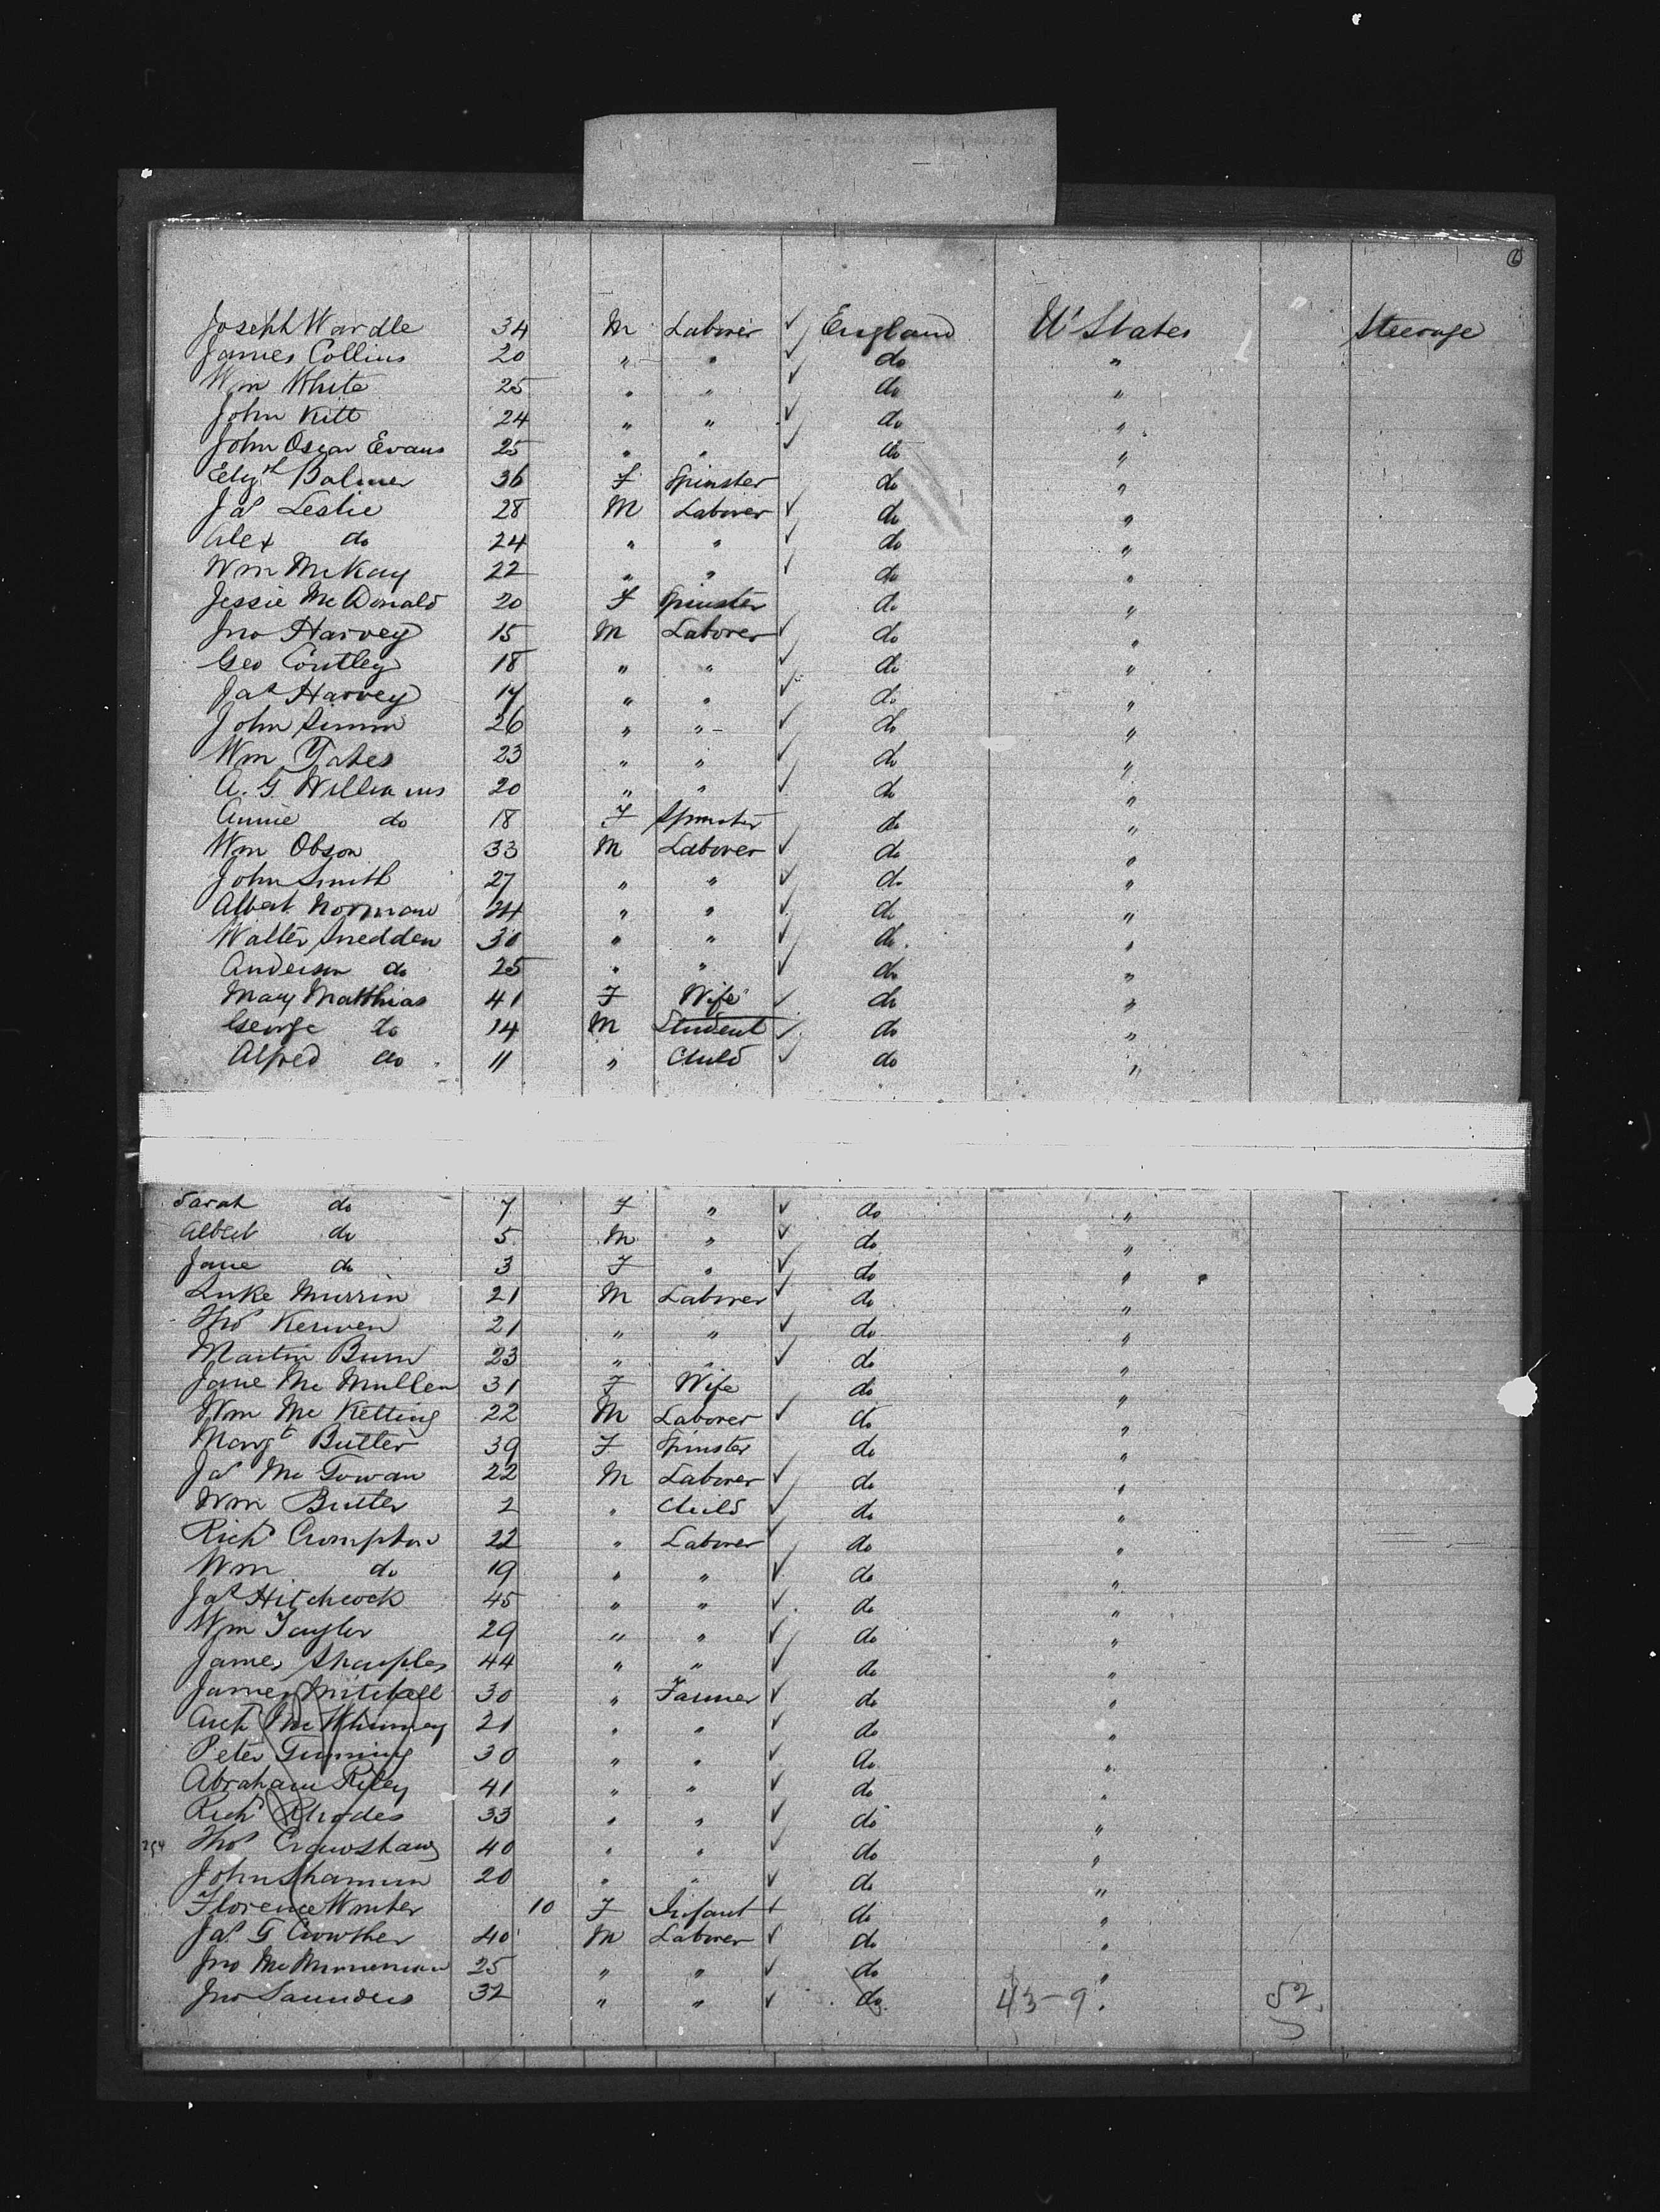 6
Joseph Wardle 34 M Laborer ✓ England U States Steerage
James Collins 20 " " ✓ do "
Wm White 25 " " ✓ do "
John Kitt 24 " " ✓ do "
John Oscar Evans 25 " " ✓ do "
Elizth Balmer 36 F Spinster do "
Jas Leslie 28 M Laborer ✓ do "
Alex do 24 " " ✓ do "
Wm McKay 22 " " ✓ do "
Jessie McDonald 20 F Spinster do "
Jno Harvey 15 M Laborer ✓ do "
Geo Coutley 18 " " ✓ do "
Jas Harvey 17 " " ✓ do "
John Simm 26 " " ✓ do "
Wm Yates 23 " " ✓ do "
A. G. Williams 20 " " ✓ do "
Annie do 18 F Spinster do "
Wm Obson 33 M Laborer ✓ do "
John Smith 27 " " ✓ do "
Albert Norman 24 " " ✓ do "
Walter Snedden 30 " " ✓ do "
Anderson do 25 " " ✓ do "
Mary Matthias 41 F Wife ✓ do "
George do 14 M Student ✓ do "
Alfred do 11 " Child ✓ do "
Sarah do 7 F " ✓ do "
Albert do 5 M " ✓ do "
Jane do 3 F " ✓ do "
Luke Murrin 21 M Laborer ✓ do "
Thos Kerwen 21 " " ✓ do "
Martin Burn 23 " " ✓ do "
Jane McMullen 31 F Wife do "
Wm McKetting 22 M Laborer ✓ do "
Margt Butler 39 F Spinster do "
Jas McGowan 22 M Laborer ✓ do "
Wm Butler 2 " Child ✓ do "
Richd Crompton 22 " Laborer ✓ do "
Wm do 19 " " ✓ do "
Jas Hitchcock 45 " " ✓ do "
Wm Taylor 29 " " ✓ do "
James Sharples 44 " " ✓ do "
James Mitchell 30 " Farmer ✓ do "
Archd McWhinney 21 " " ✓ do "
Peter Gunning 30 " " ✓ do "
Abraham Riley 41 " " ✓ do "
Richd Rhodes 33 " " ✓ do "
Thos Crawshaw 40 " " ✓ do "
John 20 " " ✓ do "
Florence Winter 10 F Infant ✓ do "
Jas G Crowther 40 M Laborer ✓ do "
Jno 25 " " ✓ do "
Jno Saunders 32 " " ✓ do "
43-9 52